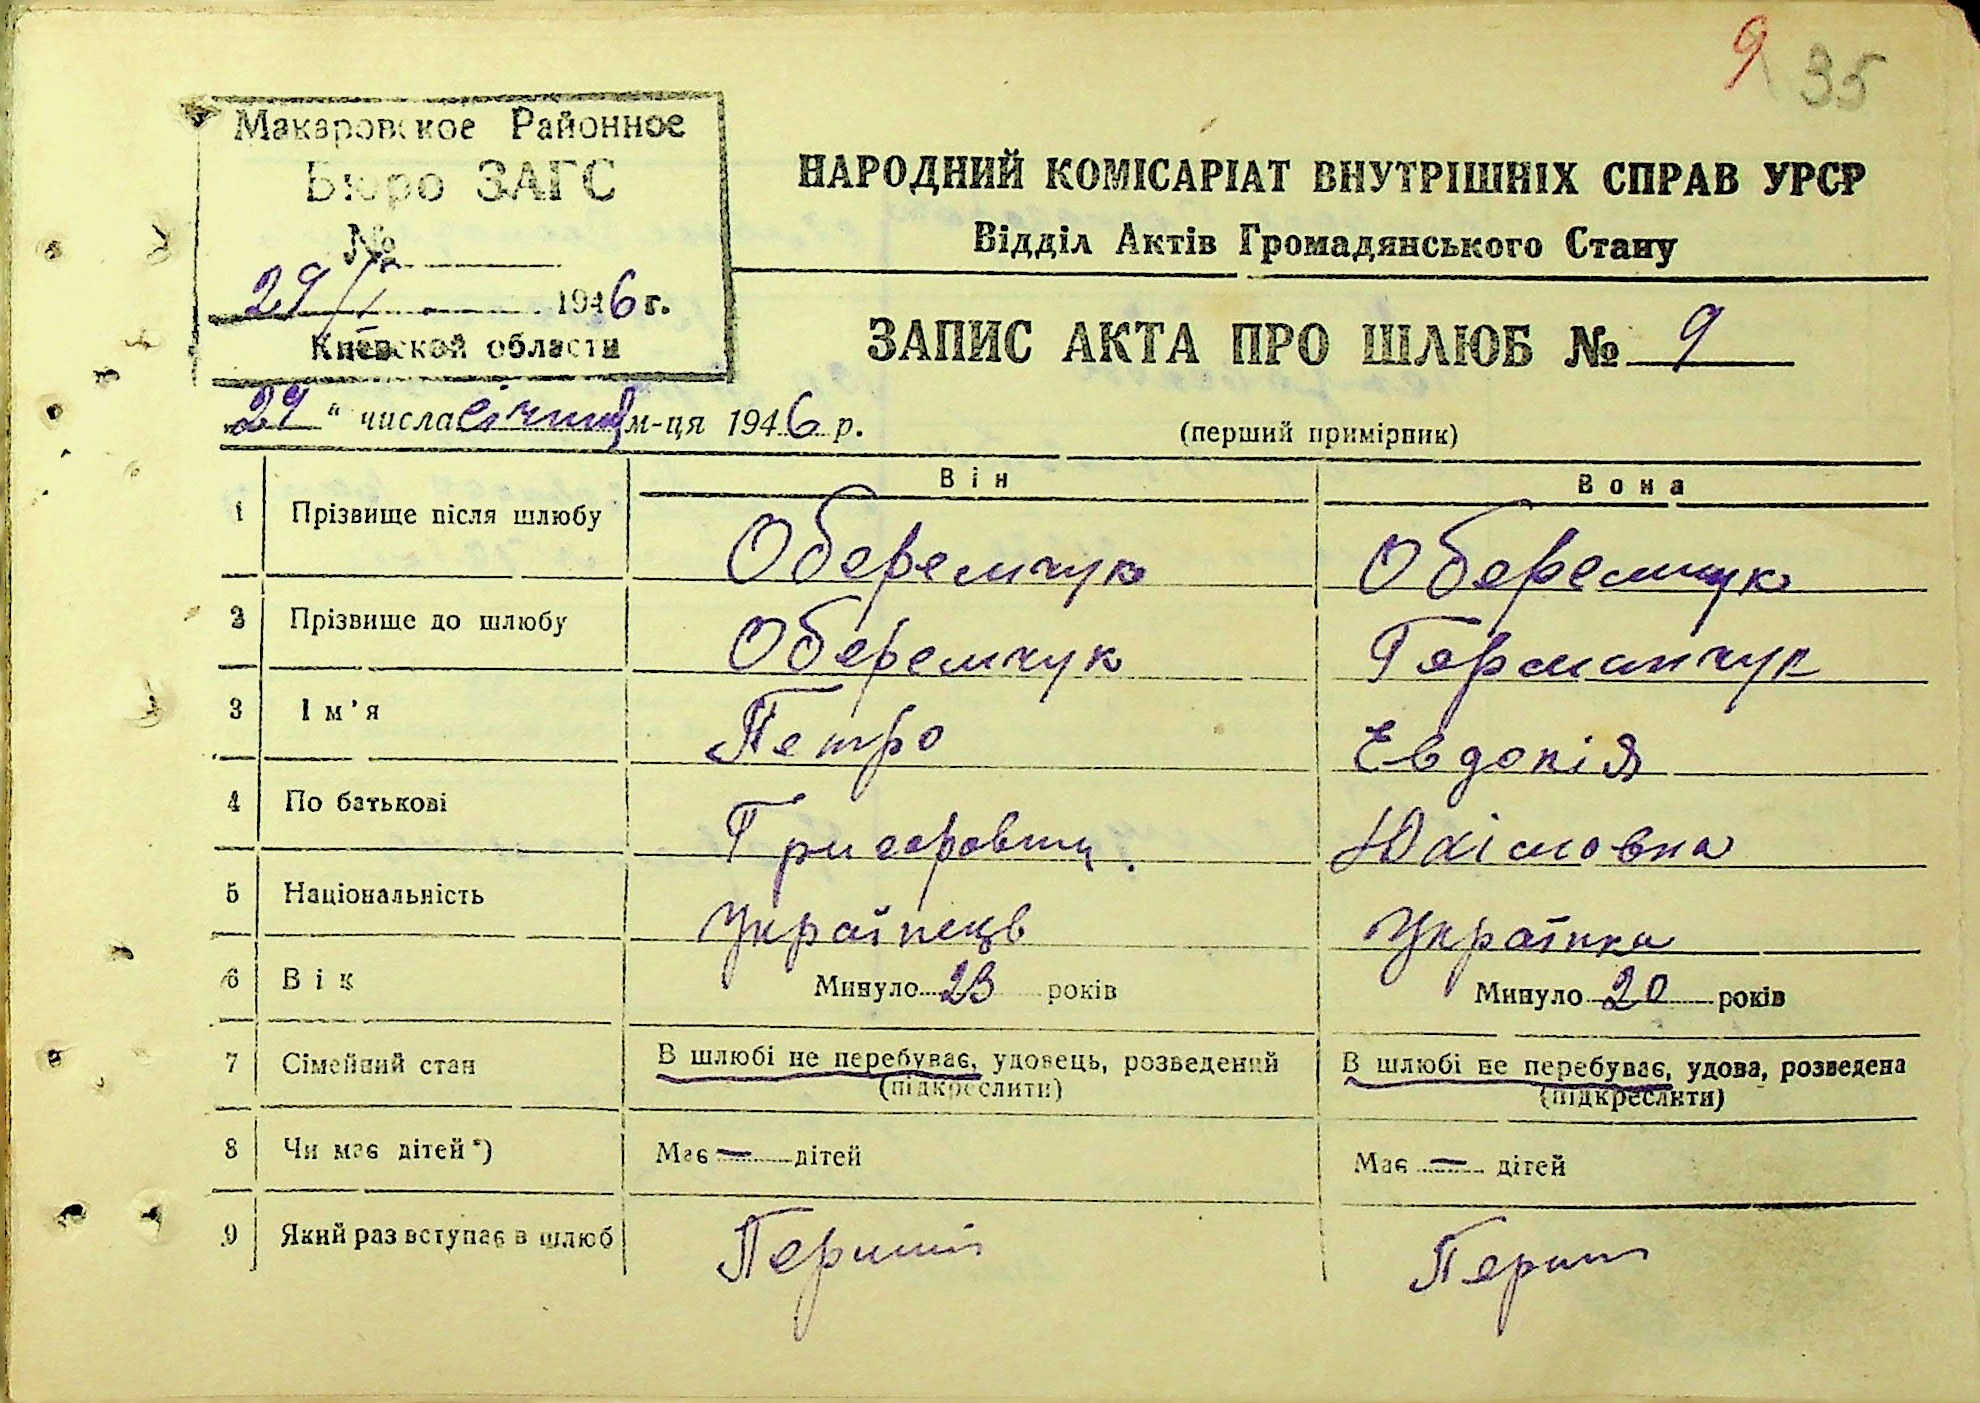 9 35
Макаровское Районное
Бюро ЗАГС
№
29/I 1946 г.
Киевской области
НАРОДНИЙ КОМІСАРІАТ ВНУТРІШНІХ СПРАВ УРСР
Відділ Актів Громадянського Стану
ЗАПИС АКТА ПРО ШЛЮБ № 9
29 " числа січня м-ця 1946 р.
(перший примірник)
Він Вона
1 Прізвище після шлюбу Оберемчук Оберемчук
2 Прізвище до шлюбу Оберемчук Германчук
3 Ім'я Петро Евдокія
4 По батькові Григорович Юхімовна
5 Національність Українець Українка
6 Вік Минуло 23 років Минуло 20 років
7 Сімейний стан В шлюбі не перебуває, удовець, розведений В шлюбі не перебуває, удова, розведена
(підкреслити) (підкреслити)
8 Чи має дітей*) Має — дітей Має — дітей
9 Який раз вступає в шлюб Перший Перший